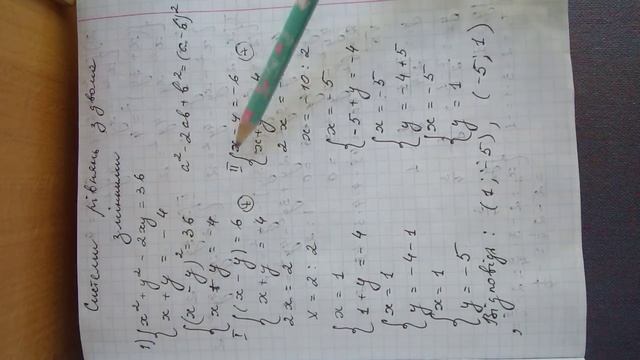 Системи рівнянь з двома
змінними
1) { x² + y² - 2xy = 36
{ x + y = -4
{ (x - y)² = 36
{ x + y = -4
a² - 2ab + b² = (a - b)²
I { (x - y) = 6 ⊕
{ x + y = -4
2x = 2
x = 2 : 2
{ x = 1
{ 1 + y = -4
{ x = 1
{ y = -4 - 1
{ x = 1
{ y = -5
II { x - y = -6 ⊕
{ x + y 4
2x = -
x = -10 : 2
{ x = -5
{ -5 + y = -4
{ x = -5
{ y = -4 + 5
{ x = -5
{ y = 1
Відповідь: (1; -5), (-5; 1)